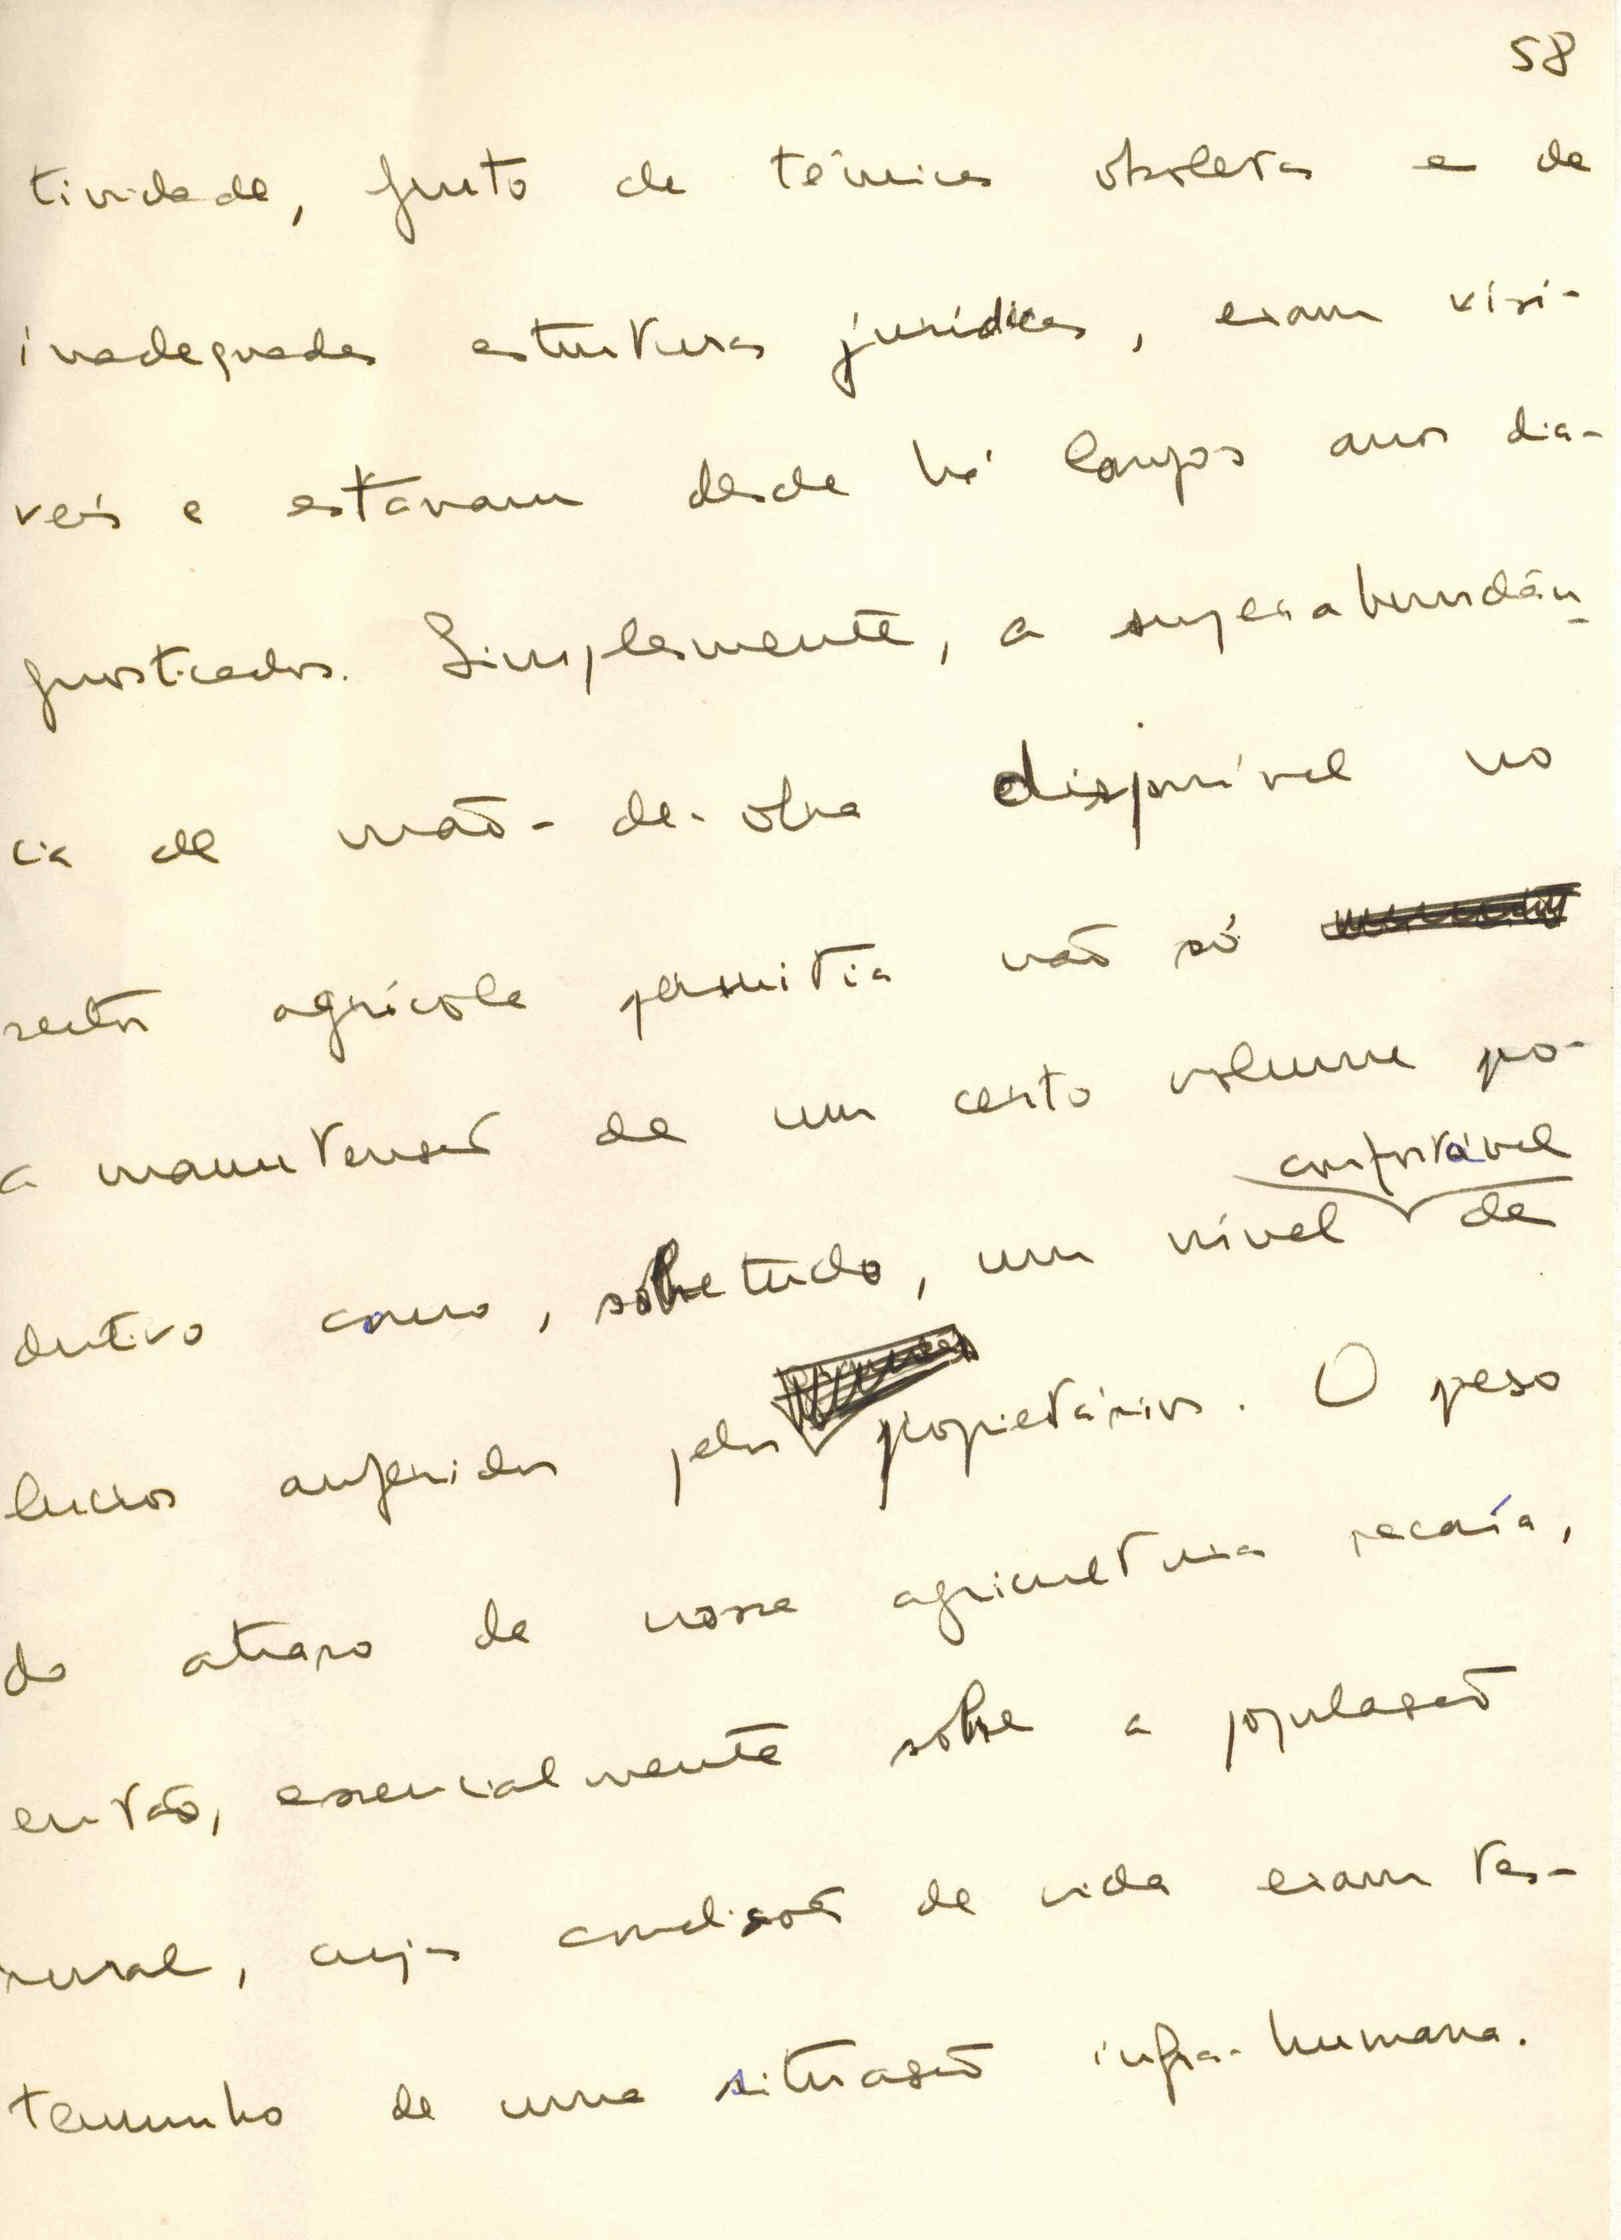 58
tividade, fruto de técnicas obsoletas e de
inadequadas estruturas jurídicas, eram visí-
veis e estavam desde há longos anos dia-
gnosticados. Simplesmente, a superabundân-
cia de mão-de-obra disponível no
sector agrícola permitia não só
a manutenção de um certo volume pro-
confortável
dutivo como, sobretudo, um nível de
lucros auferidos pelos proprietários. O peso
do atraso da nossa agricultura recaía,
então, essencialmente sobre a população
rural, cujas condições de vida eram tes-
temunho de uma situação infra-humana.